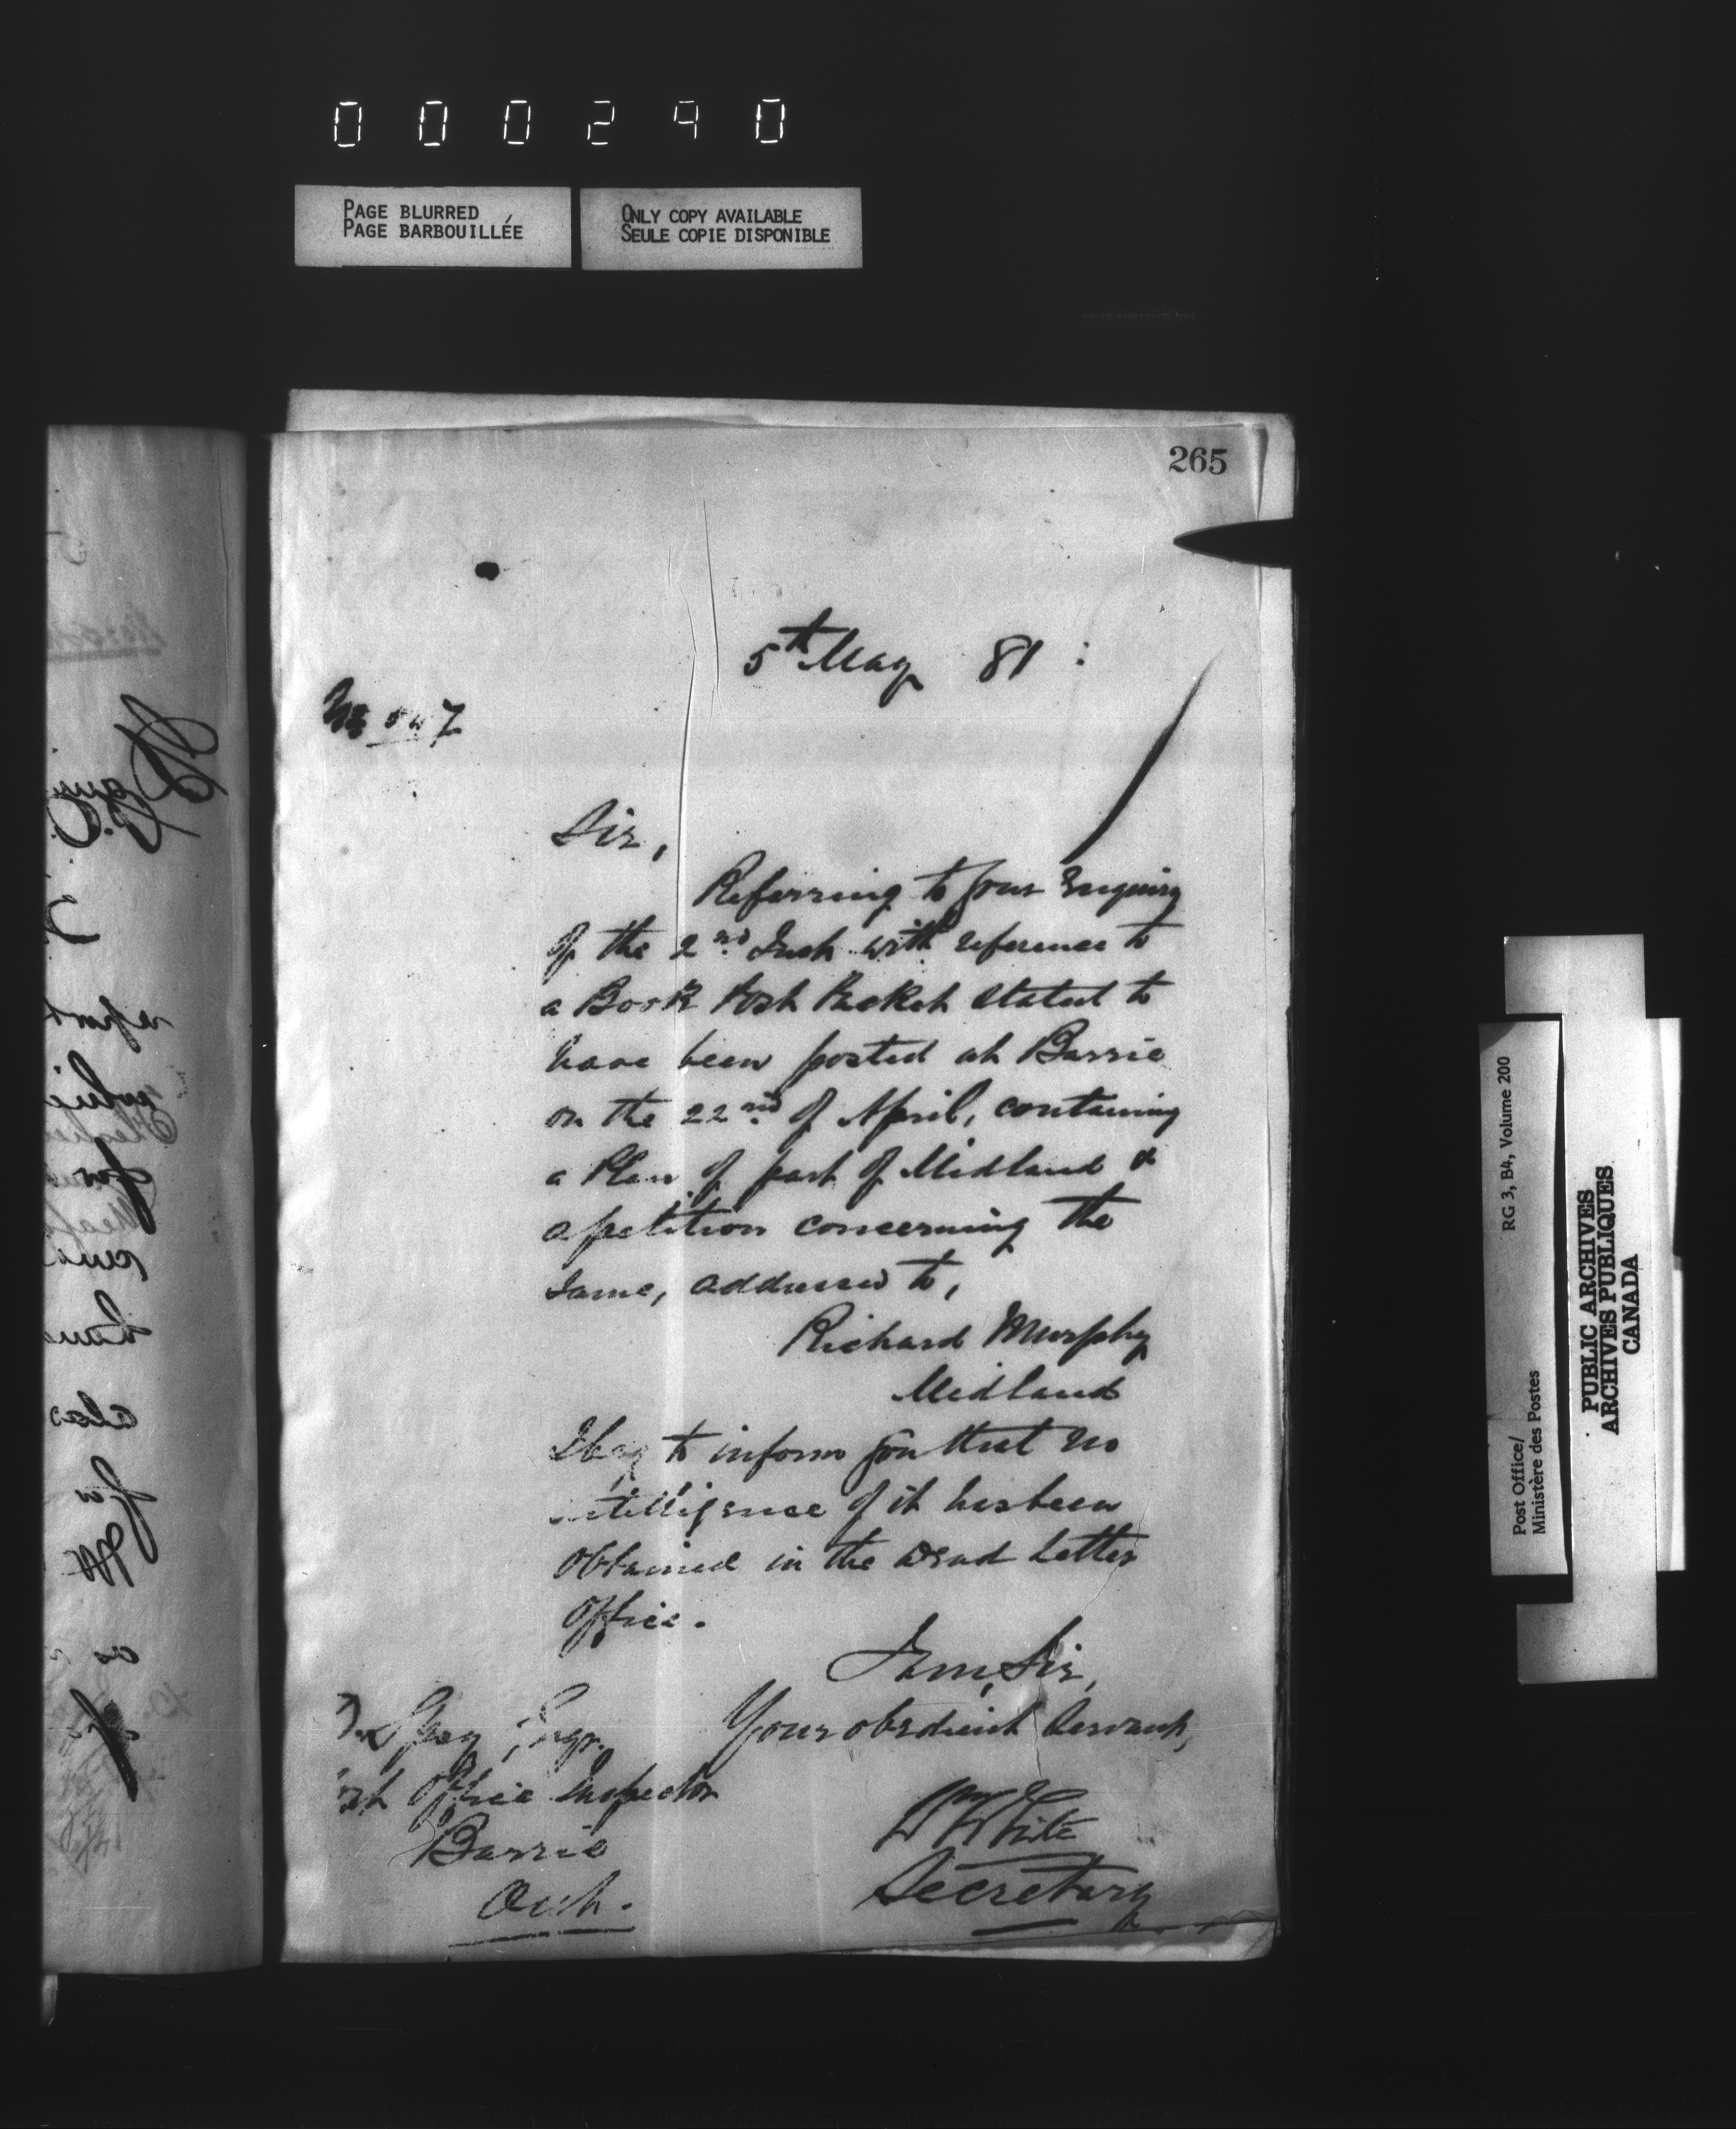 000290
PAGE BLURRED
PAGE BARBOUILLÉE
ONLY COPY AVAILABLE
SEULE COPIE DISPONIBLE
265
5th May 81
Sir,
Referring to your Enquiry
of the 2nd Inst with reference to
a Book Post Packet stated to
have been posted at Barrie
on the 22nd of April, containing
a Plan of part of Midland &
a petition concerning the
same, addressed to,
Richard Murphy
Midland
I beg to inform you that no
intelligence of it has been
obtained in the Dead Letter
Office.
I am, Sir,
Your obedient Servant,
Wm White
Secretary
Post Office Inspector
Barrie
Ont.
RG 3, B4, Volume 200
Post Office/
Ministère des Postes
PUBLIC ARCHIVES
ARCHIVES PUBLIQUES
CANADA